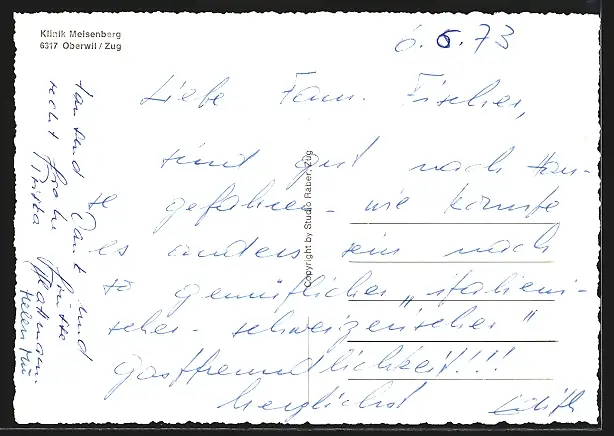 Klinik Meisenberg
6317 Oberwil / Zug
6.6.73
Liebe Fam. Fischer,
sind gut nach Hau-
se gefahren - wie könnte
es anders sein nach
so gemütlicher „italieni-
scher - schweizerischer"
Gastfreundlichkeit!!!
herzlichst Edith
Copyright by Studio Räber, Zug
Tausend Dank und
recht frohe Grüsse
Priska
Helen